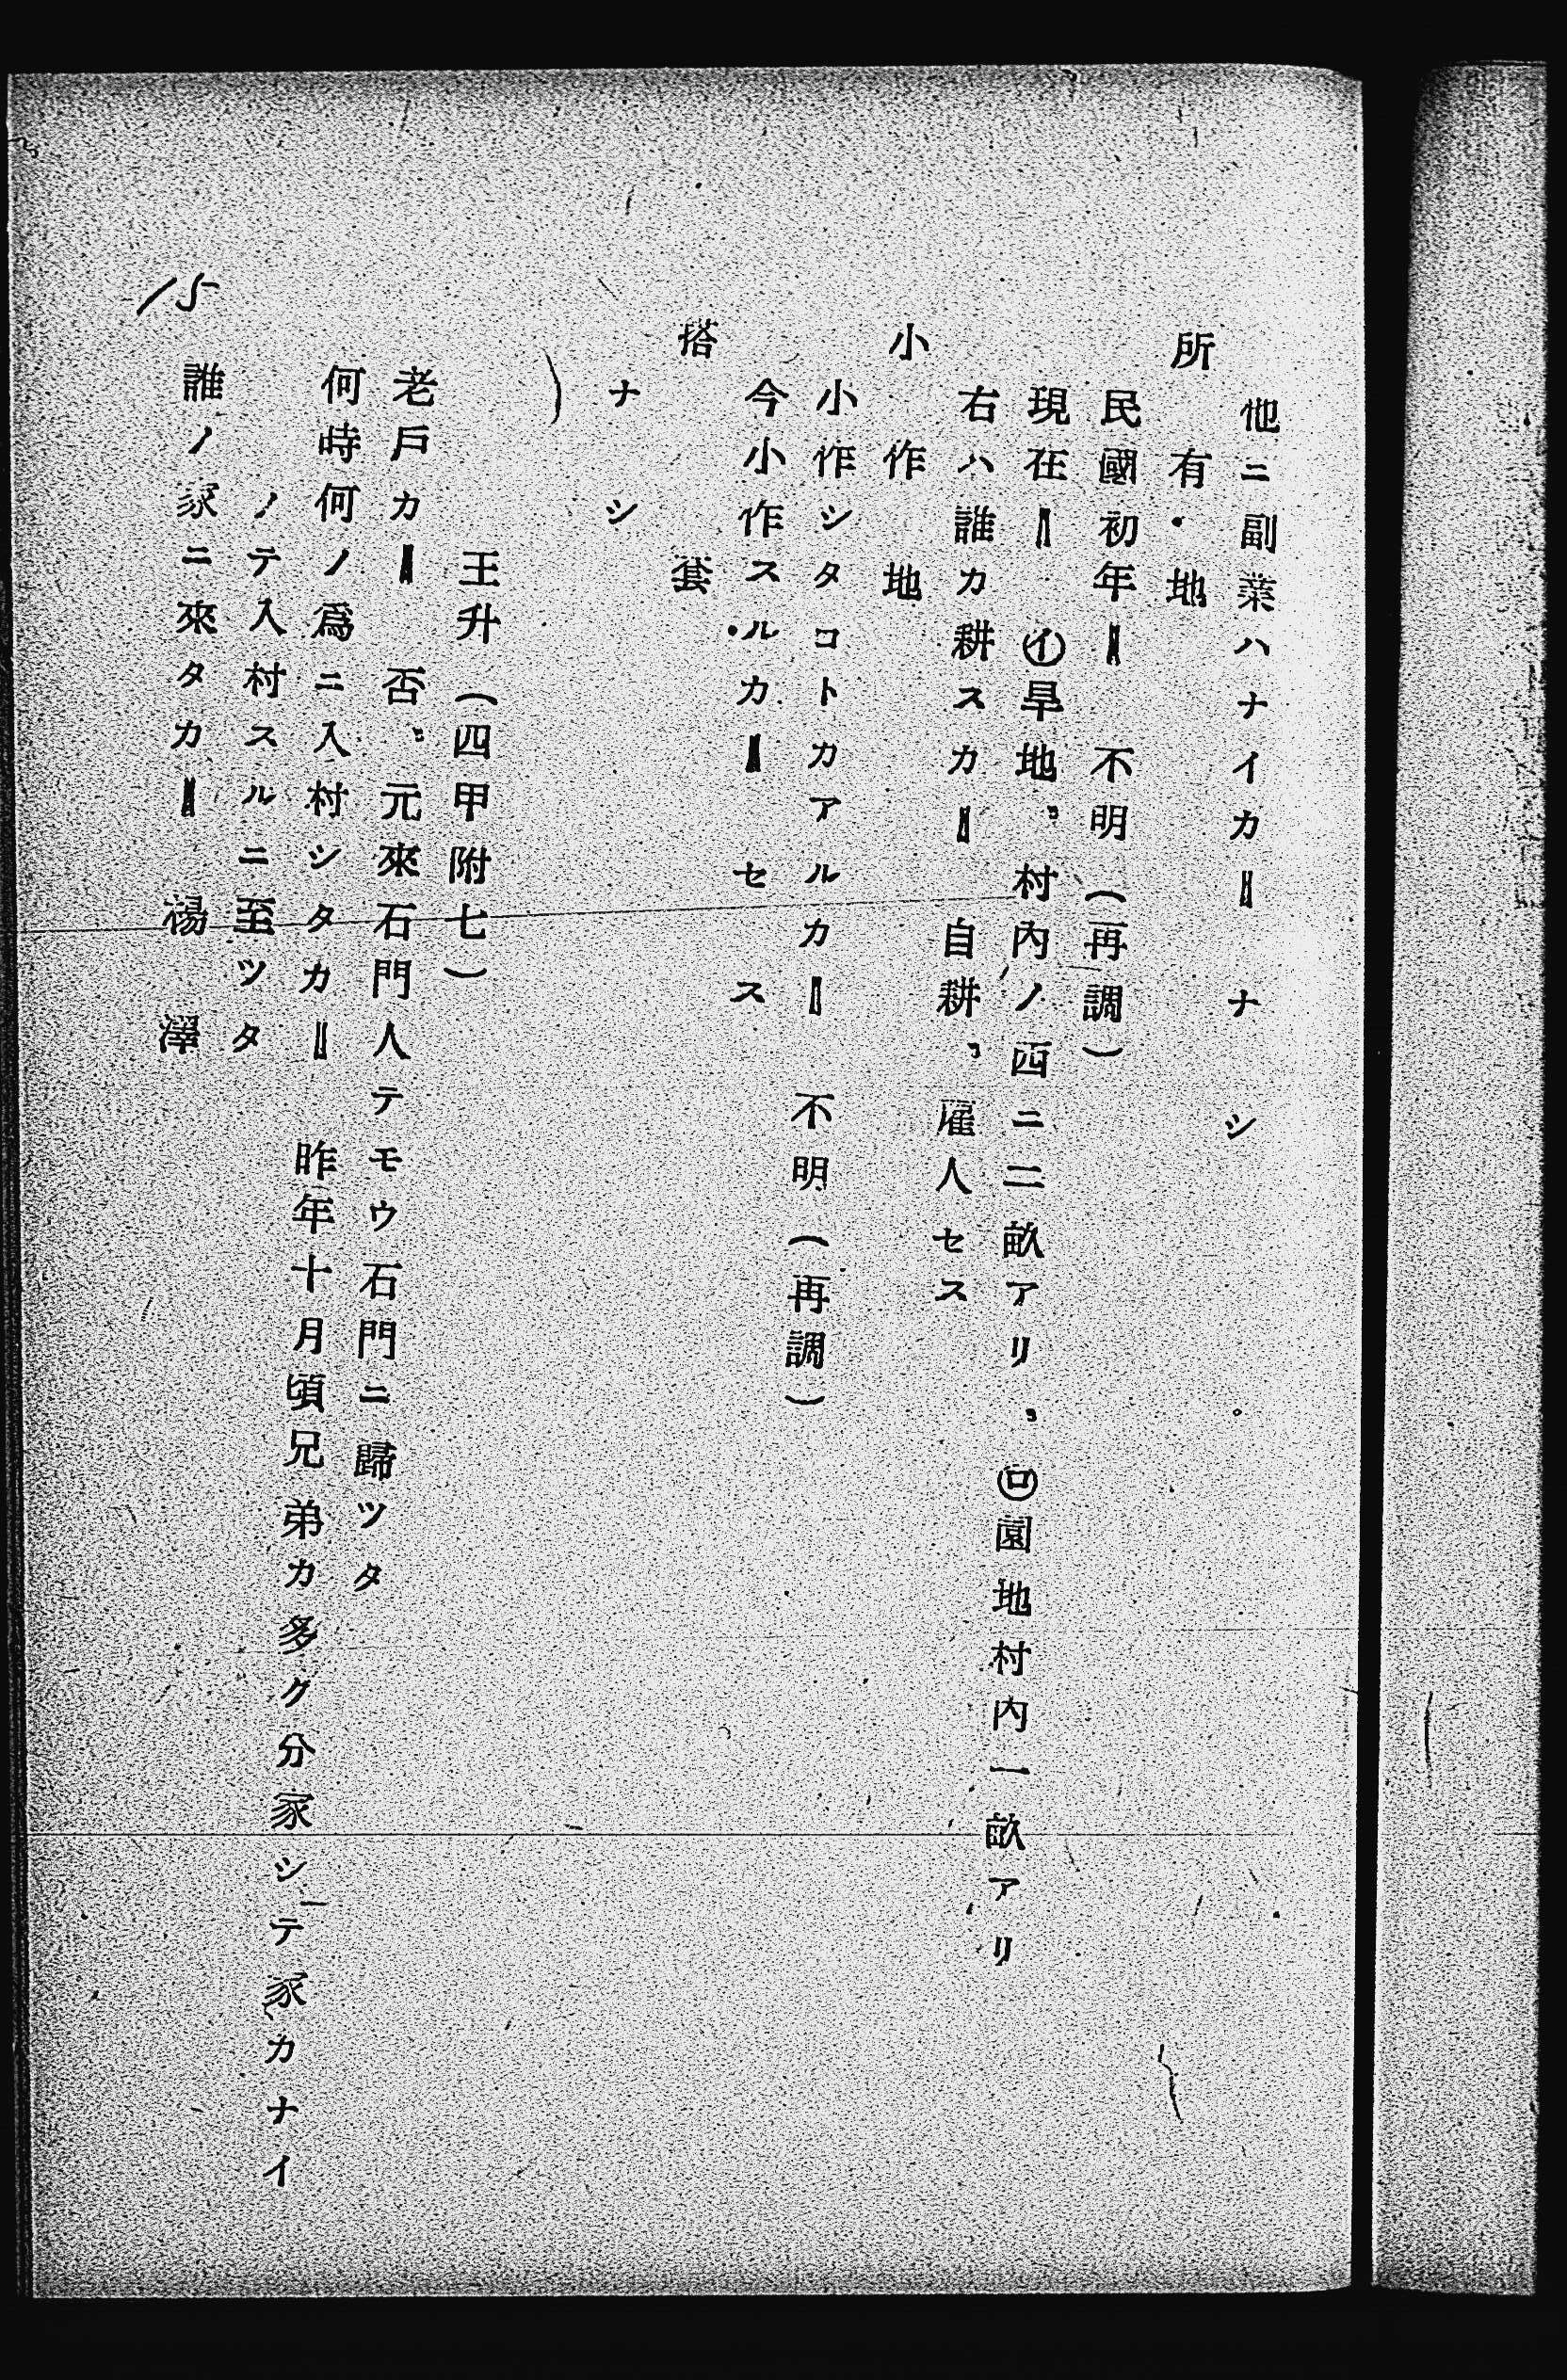 他ニ副業ハナイカ‖　ナシ。
所有・地
民國初年‖　不明（再調）
現在‖　㋑旱地。村內ノ西ニ二畝アリ，㋺園地村內一畝アリ
右ハ誰カ耕スカ‖　自耕，雇人セス
小作地
小作シタコトカアルカ‖　不明（再調）
今小作スルカ‖　セス
搭套
ナシ
王升（四甲附七）
老戶カ‖　否。元來石門人テモウ石門ニ歸ツタ
何時何ノ爲ニ入村シタカ‖　昨年十月頃兄弟カ多グ分家シテ家カナイ
ノテ入村スルニ至ツタ
誰ノ家ニ來タカ‖　楊澤
15